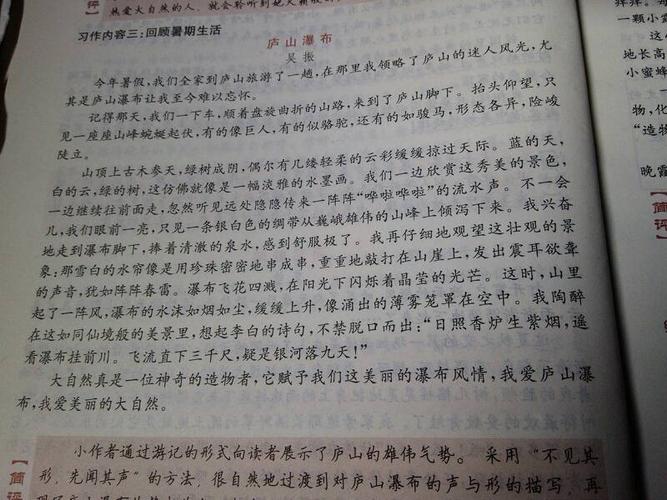 热爱大自然的人，就会聆听到她
评
习作内容三：回顾暑期生活
庐山瀑布
吴振
今年暑假，我们全家到庐山旅游了一趟，在那里我领略了庐山的迷人风光，尤
其是庐山瀑布让我至今难以忘怀。
记得那天，我们一下车，顺着盘旋曲折的山路，来到了庐山脚下。抬头仰望，只
见一座座山峰蜿蜒起伏，有的像巨人，有的似骆驼，还有的如骏马，形态各异，险峻
陡立。
山顶上古木参天，绿树成阴，偶尔有几缕轻柔的云彩缓缓掠过天际。蓝的天，
白的云，绿的树，这仿佛就像是一幅淡雅的水墨画。我们一边欣赏这秀美的景色，
一边继续往前面走，忽然听见远处隐隐传来一阵阵“哗啦哗啦”的流水声。不一会
儿，我们眼前一亮，只见一条银白色的绸带从巍峨雄伟的山峰上倾泻下来。我兴奋
地走到瀑布脚下，捧着清澈的泉水，感到舒服极了。我再仔细地观望这壮观的景
象，那雪白的水帘像是用珍珠密密地串成串，重重地敲打在山崖上，发出震耳欲聋
的声音，犹如阵阵春雷。瀑布飞花四溅，在阳光下闪烁着晶莹的光芒。这时，山里
起了一阵风，瀑布的水沫如烟如尘，缓缓上升，像涌出的薄雾笼罩在空中。我陶醉
在这如同仙境般的美景里，想起李白的诗句，不禁脱口而出：“日照香炉生紫烟，遥
看瀑布挂前川。飞流直下三千尺，疑是银河落九天！”
大自然真是一位神奇的造物者，它赋予我们这美丽的瀑布风情，我爱庐山瀑
布，我爱美丽的大自然。
小作者通过游记的形式向读者展示了庐山的雄伟气势。采用“不见其
形，先闻其声”的方法，很自然地过渡到对庐山瀑布的声与形的描写，再
简评
一颗小
这
地长高
小蜜蜂
物，化
“造物
晚霞
简评